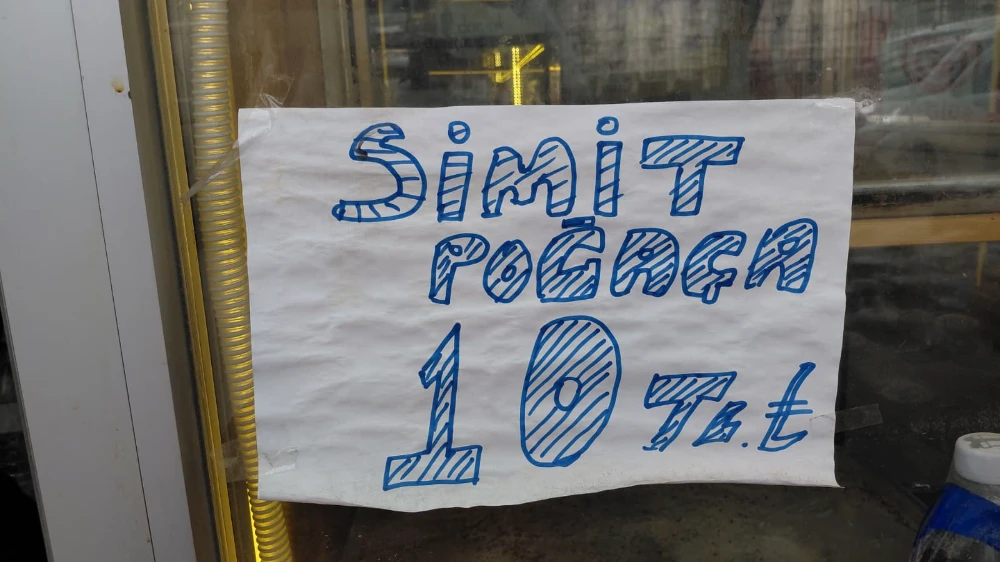 SiMiT
POĞAÇA
10 TL. ₺